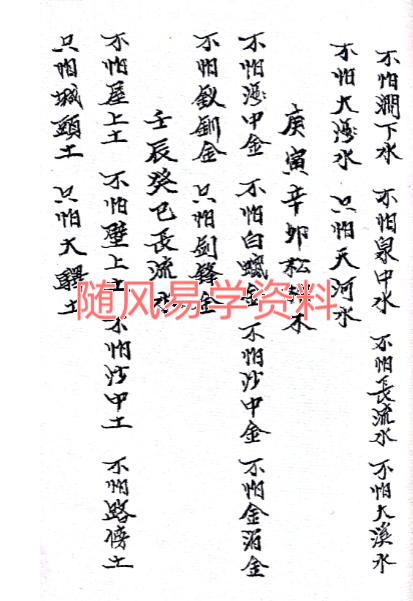 不怕澗下水 不怕泉中水 不怕長流水 不怕大溪水
不怕大海水 只怕天河水
庚寅辛卯松柏木
不怕海中金 不怕白蠟金 不怕沙中金 不怕金泊金
不怕釵釧金 只怕剑鋒金
壬辰癸巳長流水
不怕屋上土 不怕壁上土 不怕沙中土 不怕路傍土
只怕城頭土 只怕大驛土
随风易学资料